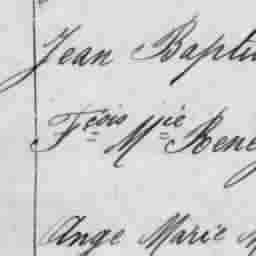 Jean Bapti
Fçois Mie René
Ange Marie M